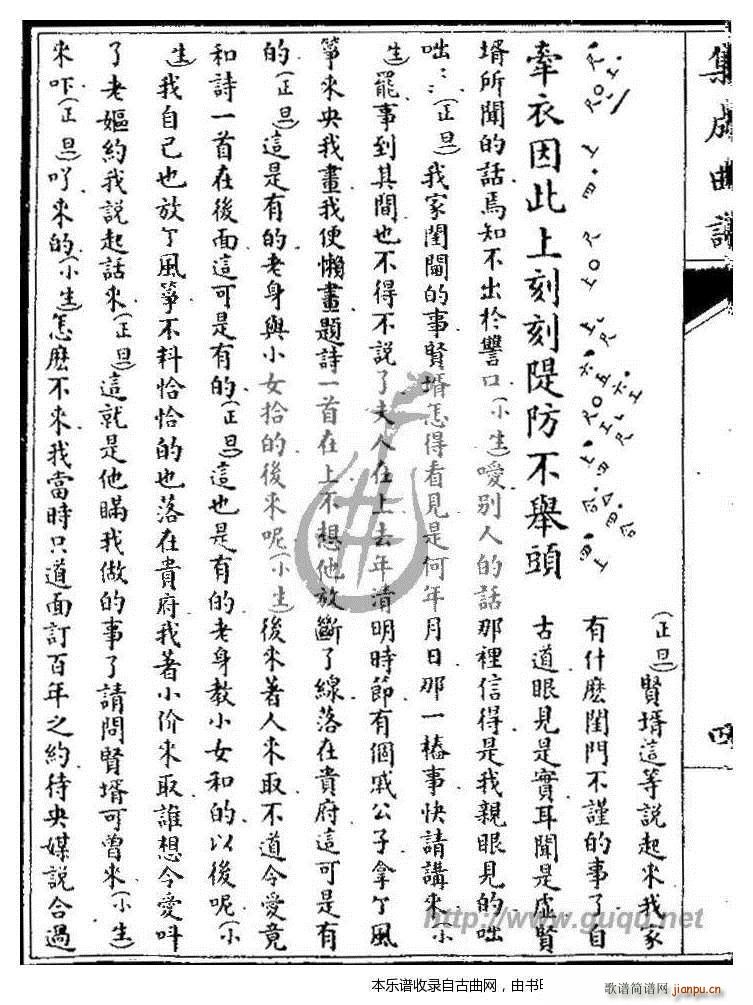 集成曲譜
四
牽衣因此上刻刻隄防不舉頭
(正旦)賢壻這等説起來我家
有什麽閨門不謹的事了自
古道眼見是實耳聞是虛賢
壻所聞的話焉知不出於讐口(小生)噯别人的話那裡信得是我親眼見的咄
咄:(正旦)我家閨閫的事賢壻怎得看見是何年月日那一樁事快請講來(小
生)罷事到其間也不得不説了夫人在上去年清明時節有個戚公子拿了風
箏來央我畫我便懶畫題詩一首在上不想他放斷了線落在貴府這可是有
的(正旦)這是有的老身與小女拾的後來呢(小生)後來著人來取不道令愛竟
和詩一首在後面這可是有的(正旦)這也是有的老身教小女和的以後呢(小
生)我自己也放了風箏不料恰恰的也落在貴府我著小价來取誰想令愛呌
了老嫗約我説起話來(正旦)這就是他瞞我做的事了請問賢壻可曾來(小生)
來吓(正旦)吖來的(小生)怎麽不來我當時只道面訂百年之約待央媒説合過
http://www.guqu.net
本乐谱收录自古曲网，由书
歌谱简谱网
jianpu.cn